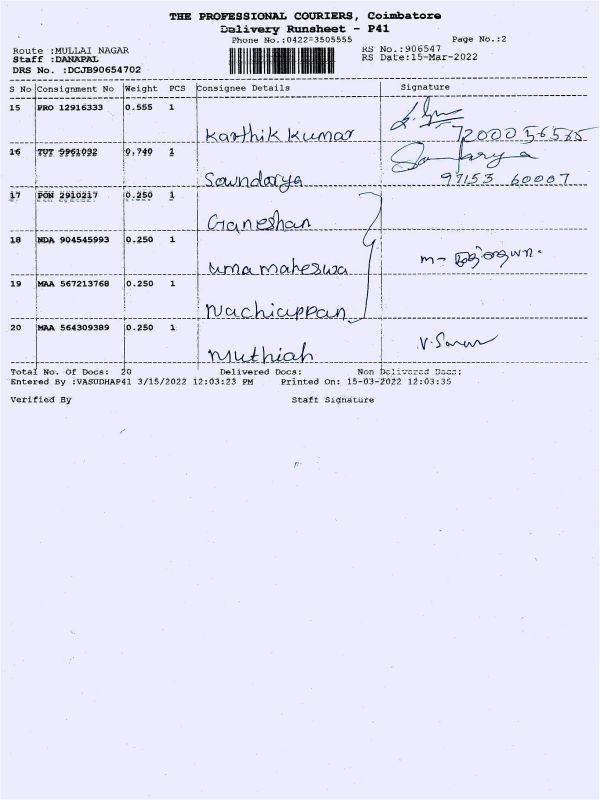 THE PROFESSIONAL COURIERS, Coimbatore
Delivery Runsheet - P41
Phone No.:0422-3505555 Page No.:2
Route :MULLAI NAGAR RS No.:906547
Staff :DANAPAL RS Date:15-Mar-2022
DRS No. :DCJB90654702
S No Consignment No Weight PCS Consignee Details Signature
15 PRO 12916333 0.555 1
Karthik kumar 72000 56565
16 TUT 5961092 0.740 1
Soundarya Soundarya
97153 60007
17 PON 2910217 0.250 1
Ganeshan
18 NDA 904545993 0.250 1
uma maheswa
19 MAA 567213768 0.250 1
Nachiappan
20 MAA 564309389 0.250 1
Muthiah
Total No. Of Docs: 20 Delivered Docs: Non Delivered Docs:
Entered By :VASUDHAP41 3/15/2022 12:03:23 PM Printed On: 15-03-2022 12:03:35
Verified By Staff Signature